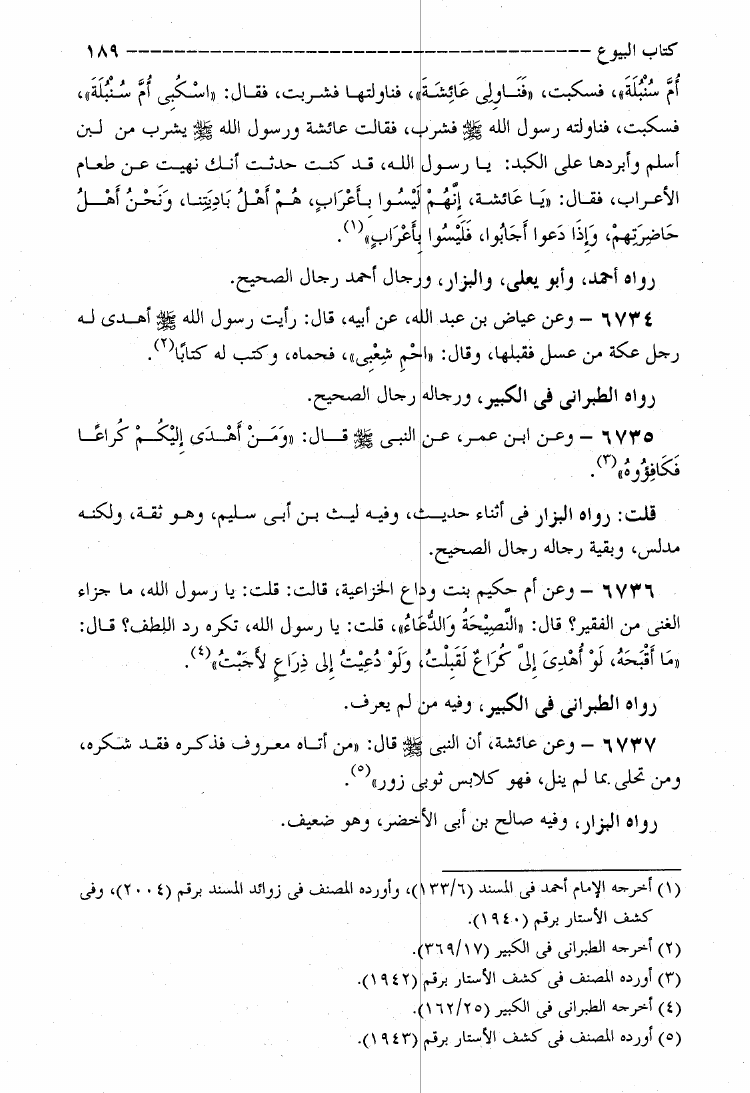 كتاب البيوع ---------------------------------------- ١٨٩
أُمَّ سُنْبُلَةَ»، فسكبت، «فَنَـاوِلِى عَائِشَـةَ»، فناولتهـا فشربت، فقال: «اسْـكُبِى أُمَّ سُـنْبُلَة»،
فسكبت، فناولته رسول الله ﷺ فشرب، فقالت عائشة ورسول الله ﷺ يشرب من لبن
أسلم وأبردها على الكبد: يـا رسـول اللـه، قـد كنـت حدثـت أنـك نهيـت عـن طعـام
الأعراب، فقال: «يَـا عَائشـة، إِنَّهُـمْ لَيْسُـوا بِـأَعْرَابٍ، هُـمْ أَهْلُ بَادِيَتِنـا، وَنَحْـنُ أَهْــلُ
حَاضِرَتِهِمْ، وَإِذَا دَعوا أَجَابُوا، فَلَيْسُوا بِأَعْرَابٍ»(١).
رواه أحمد، وأبو يعلى، والبزار، ورجال أحمد رجال الصحيح.
٦٧٣٤ – وعن عياض بن عبد الله، عن أبيه، قال: رأيت رسول الله ﷺ أهـدى لـه
رجل عكة من عسل فقبلها، وقال: «احْمِ شِعْبِى»، فحماه، وكتب له كتابًا(٢).
رواه الطبرانى فى الكبير، ورجاله رجال الصحيح.
٦٧٣٥ – وعـن ابـن عمـر، عـن النبـى ﷺ قـــال: «وَمَــنْ أَهْــدَى إِلَيْكُــمْ كُرَاعًــا
فَكَافِؤُوهُ»(٣).
قلت: رواه البزار فى أثناء حديـث، وفيـه ليـث بـن أبـى سـليم، وهـو ثقـة، ولكنـه
مدلس، وبقية رجاله رجال الصحيح.
٦٧٣٦ – وعن أم حكيم بنت وداع الخزاعية، قالت: قلت: يا رسول الله، ما جزاء
الغنى من الفقير؟ قال: «النَّصِيْحَةُ وَالدُّعَاءُ»، قلت: يا رسول الله، تكره رد اللطف؟ قـال:
«مَا أَقْبَحَهُ، لَوْ أُهْدِىَ إِلَىَّ كُرَاعٌ لَقَبِلْتُ، وَلَوْ دُعِيْتُ إِلى ذِرَاعٍ لأَجَبْتُ»(٤).
رواه الطبرانى فى الكبير، وفيه من لم يعرف.
٦٧٣٧ – وعن عائشة، أن النبى ﷺ قال: «من أتـاه معـروف فذكـره فقـد شـكره،
ومن تحلى بما لم ينل، فهو كلابس ثوبى زور»(٥).
رواه البزار، وفيه صالح بن أبى الأخضر، وهو ضعيف.
(١) أخرجه الإمام أحمد فى المسند (١٣٣/٦)، وأورده المصنف فى زوائد المسند برقم (٢٠٠٤)، وفى
كشف الأستار برقم (١٩٤٠).
(٢) أخرجه الطبرانى فى الكبير (٣٦٩/١٧).
(٣) أورده المصنف فى كشف الأستار برقم (١٩٤٢).
(٤) أخرجه الطبرانى فى الكبير (١٦٢/٢٥).
(٥) أورده المصنف فى كشف الأستار برقم (١٩٤٣).